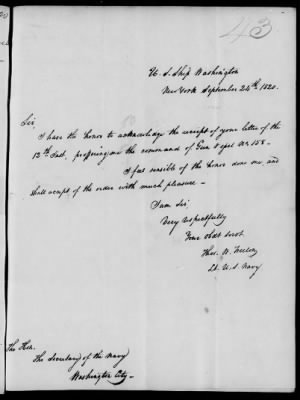 43
U. S. Ship Washington
New York September 24th 1820.
Sir,
I have the honor to acknowledge the receipt of your letter of the
12th Inst, proffering me the command of Gun Vessel No 158 -
I feel sensible of the honor done me, and
shall accept of the order with much pleasure -
I am Sir
Very Respectfully
Your obdt Servt
Thos. W.
Lt. U. S. Navy
The Hon.
The Secretary of the Navy
Washington City -